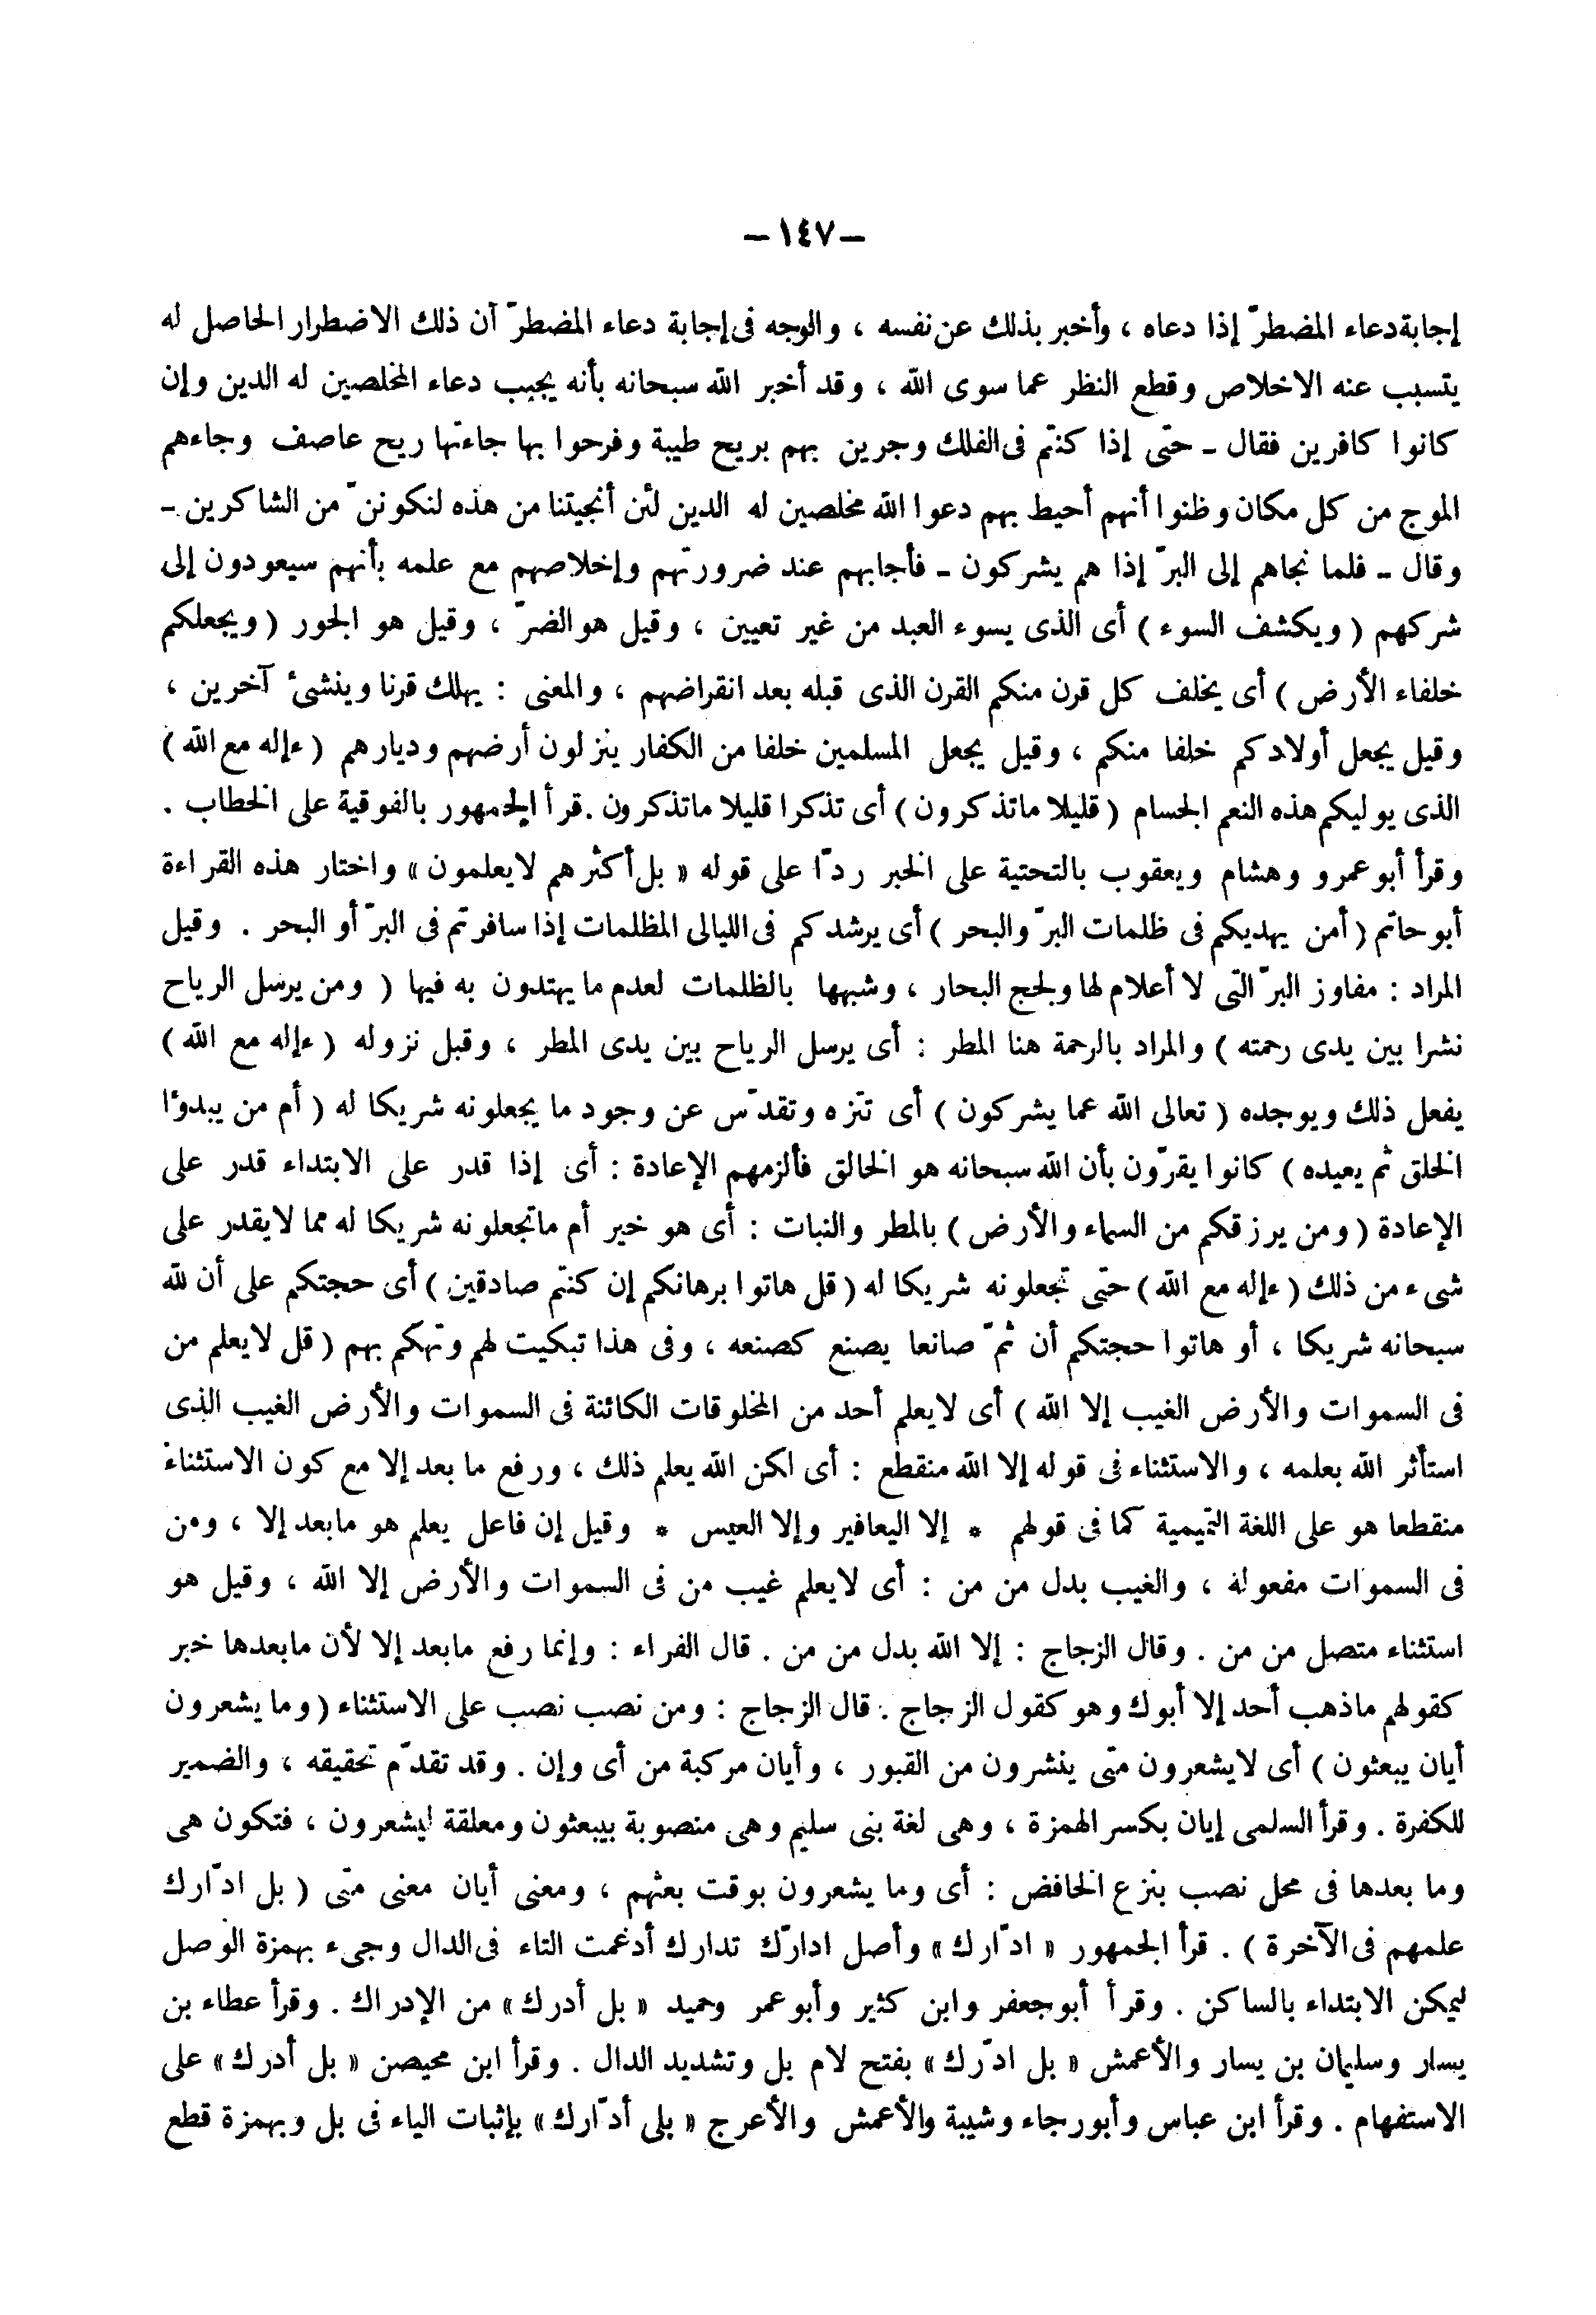 – ١٤٧ –
إجابة دعاء المضطرّ إذا دعاه ، وأخبر بذلك عن نفسه ، والوجه فى إجابة دعاء المضطرّ أن ذلك الاضطرار الحاصل له
يتسبب عنه الاخلاص وقطع النظر عما سوى الله ، وقد أخبر الله سبحانه بأنه يجيب دعاء المخلصين له الدين وإن
كانوا كافرين فقال - حتى إذا كنتم فى الفلك وجرين بهم بريح طيبة وفرحوا بها جاءتها ريح عاصف وجاءهم
الموج من كل مكان وظنوا أنهم أحيط بهم دعوا الله مخلصين له الدين لئن أنجيتنا من هذه لنكوننّ من الشاكرين -
وقال - فلما نجاهم إلى البرّ إذا هم يشركون - فأجابهم عند ضرورتهم وإخلاصهم مع علمه بأنهم سيعودون إلى
شركهم ( ويكشف السوء ) أى الذى يسوء العبد من غير تعيين ، وقيل هو الضرّ ، وقيل هو الجور ( ويجعلكم
خلفاء الأرض ) أى يخلف كل قرن منكم القرن الذى قبله بعد انقراضهم ، والمعنى : يهلك قرنا وينشئ آخرين ،
وقيل يجعل أولادكم خلفا منكم ، وقيل يجعل المسلمين خلفا من الكفار ينزلون أرضهم وديارهم ( ءإله مع الله )
الذى يوليكم هذه النعم الجسام ( قليلا ماتذكرون ) أى تذكرا قليلا ماتذكرون . قرأ الجمهور بالفوقية على الخطاب .
وقرأ أبو عمرو وهشام ويعقوب بالتحتية على الخبر ردّا على قوله « بل أكثرهم لايعلمون » واختار هذه القراءة
أبو حاتم ( أمن يهديكم فى ظلمات البرّ والبحر ) أى يرشدكم فى الليالى المظلمات إذا سافرتم فى البرّ أو البحر . وقيل
المراد : مفاوز البرّ التى لا أعلام لها ولجج البحار ، وشبهها بالظلمات لعدم ما يهتدون به فيها ( ومن يرسل الرياح
نشرا بين يدى رحمته ) والمراد بالرحمة هنا المطر : أى يرسل الرياح بين يدى المطر ، وقبل نزوله ( ءإله مع الله )
يفعل ذلك ويوجده ( تعالى الله عما يشركون ) أى تنزه وتقدّس عن وجود ما يجعلونه شريكا له ( أم من يبدؤا
الخلق ثم يعيده ) كانوا يقرّون بأن الله سبحانه هو الخالق فألزمهم الإعادة : أى إذا قدر على الابتداء قدر على
الإعادة ( ومن يرزقكم من السماء والأرض ) بالمطر والنبات : أى هو خير أم ماتجعلونه شريكا له مما لايقدر على
شىء من ذلك ( ءإله مع الله ) حتى تجعلونه شريكا له ( قل هاتوا برهانكم إن كنتم صادقين ) أى حجتكم على أن لله
سبحانه شريكا ، أو هاتوا حجتكم أن ثمّ صانعا يصنع كصنعه ، وفى هذا تبكيت لهم وتهكم بهم ( قل لايعلم من
فى السموات والأرض الغيب إلا الله ) أى لايعلم أحد من المخلوقات الكائنة فى السموات والأرض الغيب الذى
استأثر الله بعلمه ، والاستثناء فى قوله إلا الله منقطع : أى لكن الله يعلم ذلك ، ورفع ما بعد إلا مع كون الاستثناء
منقطعا هو على اللغة التميمية كما فى قولهم * إلا اليعافير وإلا العيس * وقيل إن فاعل يعلم هو مابعد إلا ، ومن
فى السموات مفعوله ، والغيب بدل من من : أى لايعلم غيب من فى السموات والأرض إلا الله ، وقيل هو
استثناء متصل من من . وقال الزجاج : إلا الله بدل من من . قال الفراء : وإنما رفع مابعد إلا لأن مابعدها خبر
كقولهم ماذهب أحد إلا أبوك وهو كقول الزجاج . قال الزجاج : ومن نصب نصب على الاستثناء ( وما يشعرون
أيان يبعثون ) أى لايشعرون متى ينشرون من القبور ، وأيان مركبة من أى وإن . وقد تقدّم تحقيقه ، والضمير
للكفرة . وقرأ السلمى إيان بكسر الهمزة ، وهى لغة بنى سليم وهى منصوبة بيبعثون ومعلقة ليشعرون ، فتكون هى
وما بعدها فى محل نصب بنزع الخافض : أى وما يشعرون بوقت بعثهم ، ومعنى أيان معنى متى ( بل ادّارك
علمهم فى الآخرة ) . قرأ الجمهور « ادّارك » وأصل ادارّك تدارك أدغمت التاء فى الدال وجىء بهمزة الوصل
ليمكن الابتداء بالساكن . وقرأ أبو جعفر وابن كثير وأبو عمر وحميد « بل أدرك » من الإدراك . وقرأ عطاء بن
يسار وسليمان بن يسار والأعمش « بل ادّرك » بفتح لام بل وتشديد الدال . وقرأ ابن محيصن « بل أدرك » على
الاستفهام . وقرأ ابن عباس وأبو رجاء وشيبة والأعمش والأعرج « بلى أدّارك » بإثبات الياء فى بل وبهمزة قطع